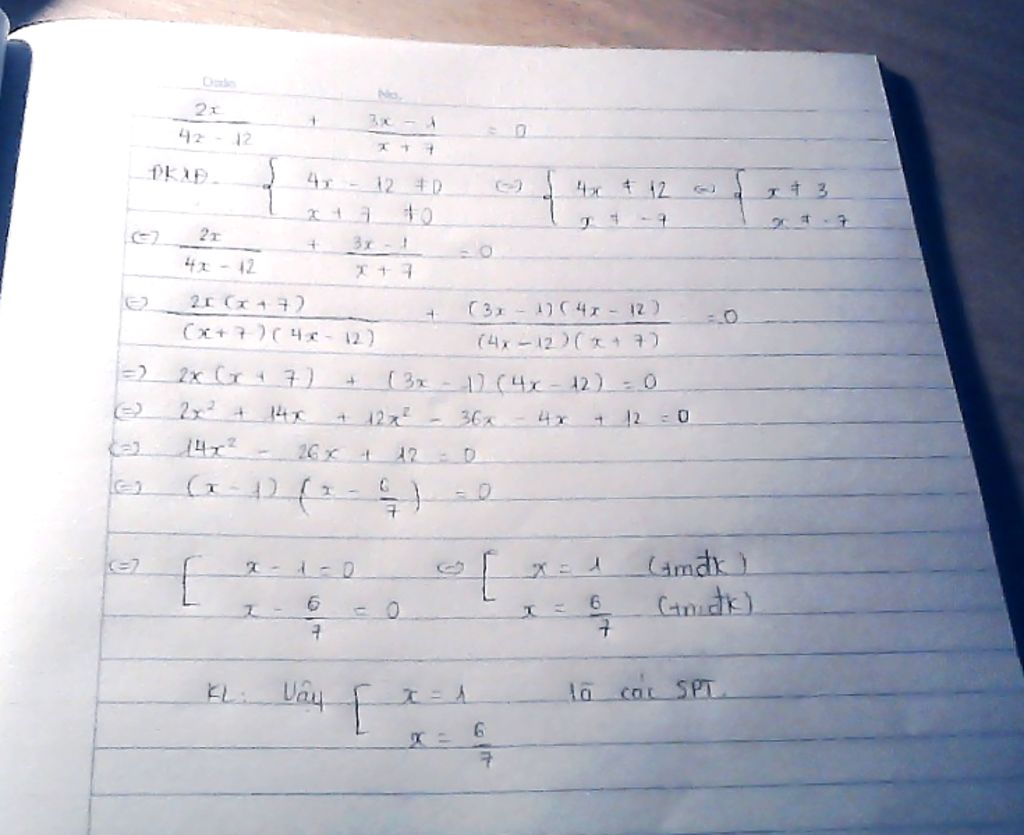 Date No.
2x/(4x - 12) + (3x - 1)/(x + 7) = 0
ĐKXĐ. { 4x - 12 ≠ 0 ; x + 7 ≠ 0 <=> { 4x ≠ 12 ; x ≠ -7 <=> { x ≠ 3 ; x ≠ -7
<=> 2x/(4x - 12) + (3x - 1)/(x + 7) = 0
<=> 2x(x + 7)/((x + 7)(4x - 12)) + (3x - 1)(4x - 12)/((4x - 12)(x + 7)) = 0
=> 2x(x + 7) + (3x - 1)(4x - 12) = 0
<=> 2x² + 14x + 12x² - 36x - 4x + 12 = 0
<=> 14x² - 26x + 12 = 0
<=> (x - 1)(x - 6/7) = 0
<=> [ x - 1 = 0 ; x - 6/7 = 0 <=> [ x = 1 (tmđk) ; x = 6/7 (tmđk)
KL: Vậy [ x = 1 ; x = 6/7 là các SPT.